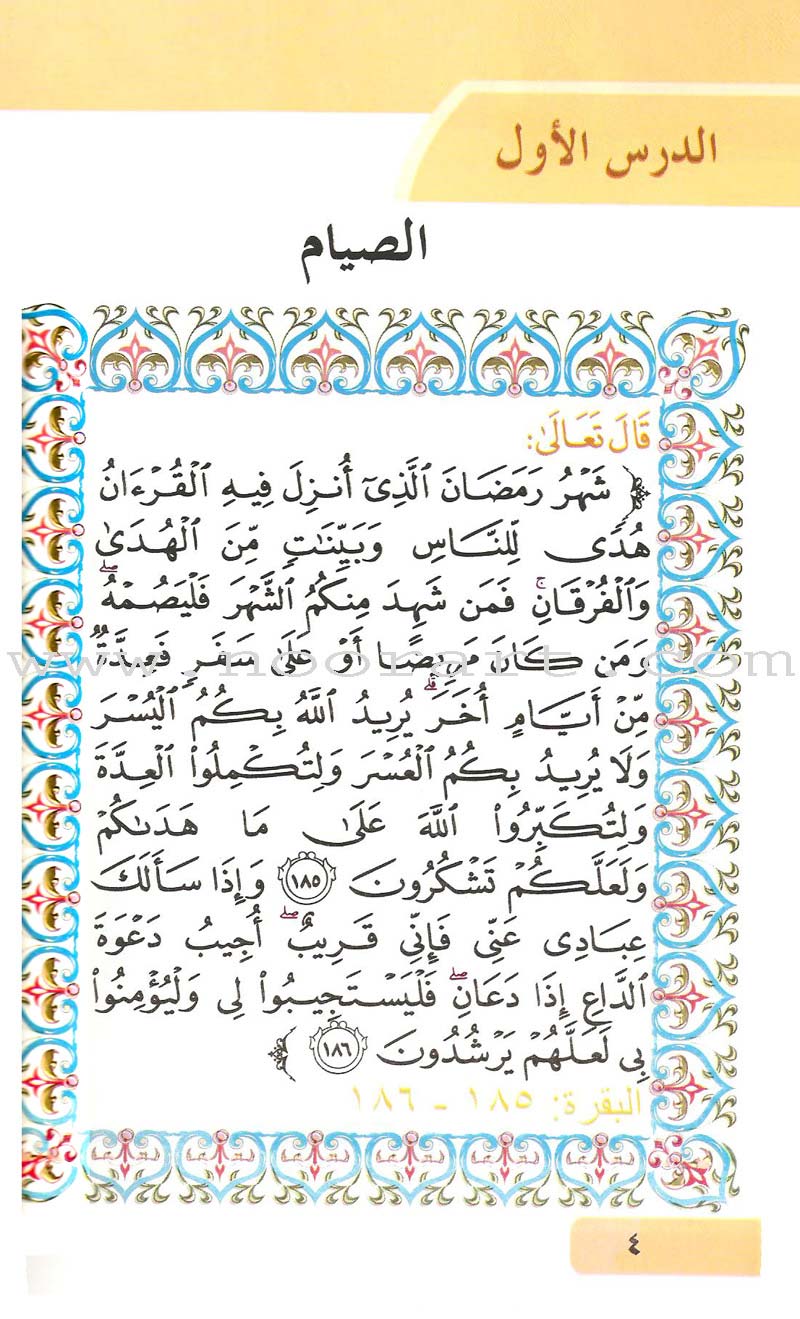 الدرس الأول
الصيام
قَالَ تَعَالَىٰ:
﴿ شَهْرُ رَمَضَانَ ٱلَّذِىٓ أُنزِلَ فِيهِ ٱلْقُرْءَانُ
هُدًى لِّلنَّاسِ وَبَيِّنَٰتٍ مِّنَ ٱلْهُدَىٰ
وَٱلْفُرْقَانِ ۚ فَمَن شَهِدَ مِنكُمُ ٱلشَّهْرَ فَلْيَصُمْهُ ۖ
وَمَن كَانَ مَرِيضًا أَوْ عَلَىٰ سَفَرٍ فَعِدَّةٌ
www.noorart.com
مِّنْ أَيَّامٍ أُخَرَ ۗ يُرِيدُ ٱللَّهُ بِكُمُ ٱلْيُسْرَ
وَلَا يُرِيدُ بِكُمُ ٱلْعُسْرَ وَلِتُكْمِلُوا۟ ٱلْعِدَّةَ
وَلِتُكَبِّرُوا۟ ٱللَّهَ عَلَىٰ مَا هَدَىٰكُمْ
وَلَعَلَّكُمْ تَشْكُرُونَ ١٨٥ وَإِذَا سَأَلَكَ
عِبَادِى عَنِّى فَإِنِّى قَرِيبٌ ۖ أُجِيبُ دَعْوَةَ
ٱلدَّاعِ إِذَا دَعَانِ ۖ فَلْيَسْتَجِيبُوا۟ لِى وَلْيُؤْمِنُوا۟
بِى لَعَلَّهُمْ يَرْشُدُونَ ١٨٦ ﴾
البقرة: ١٨٥ - ١٨٦
٤